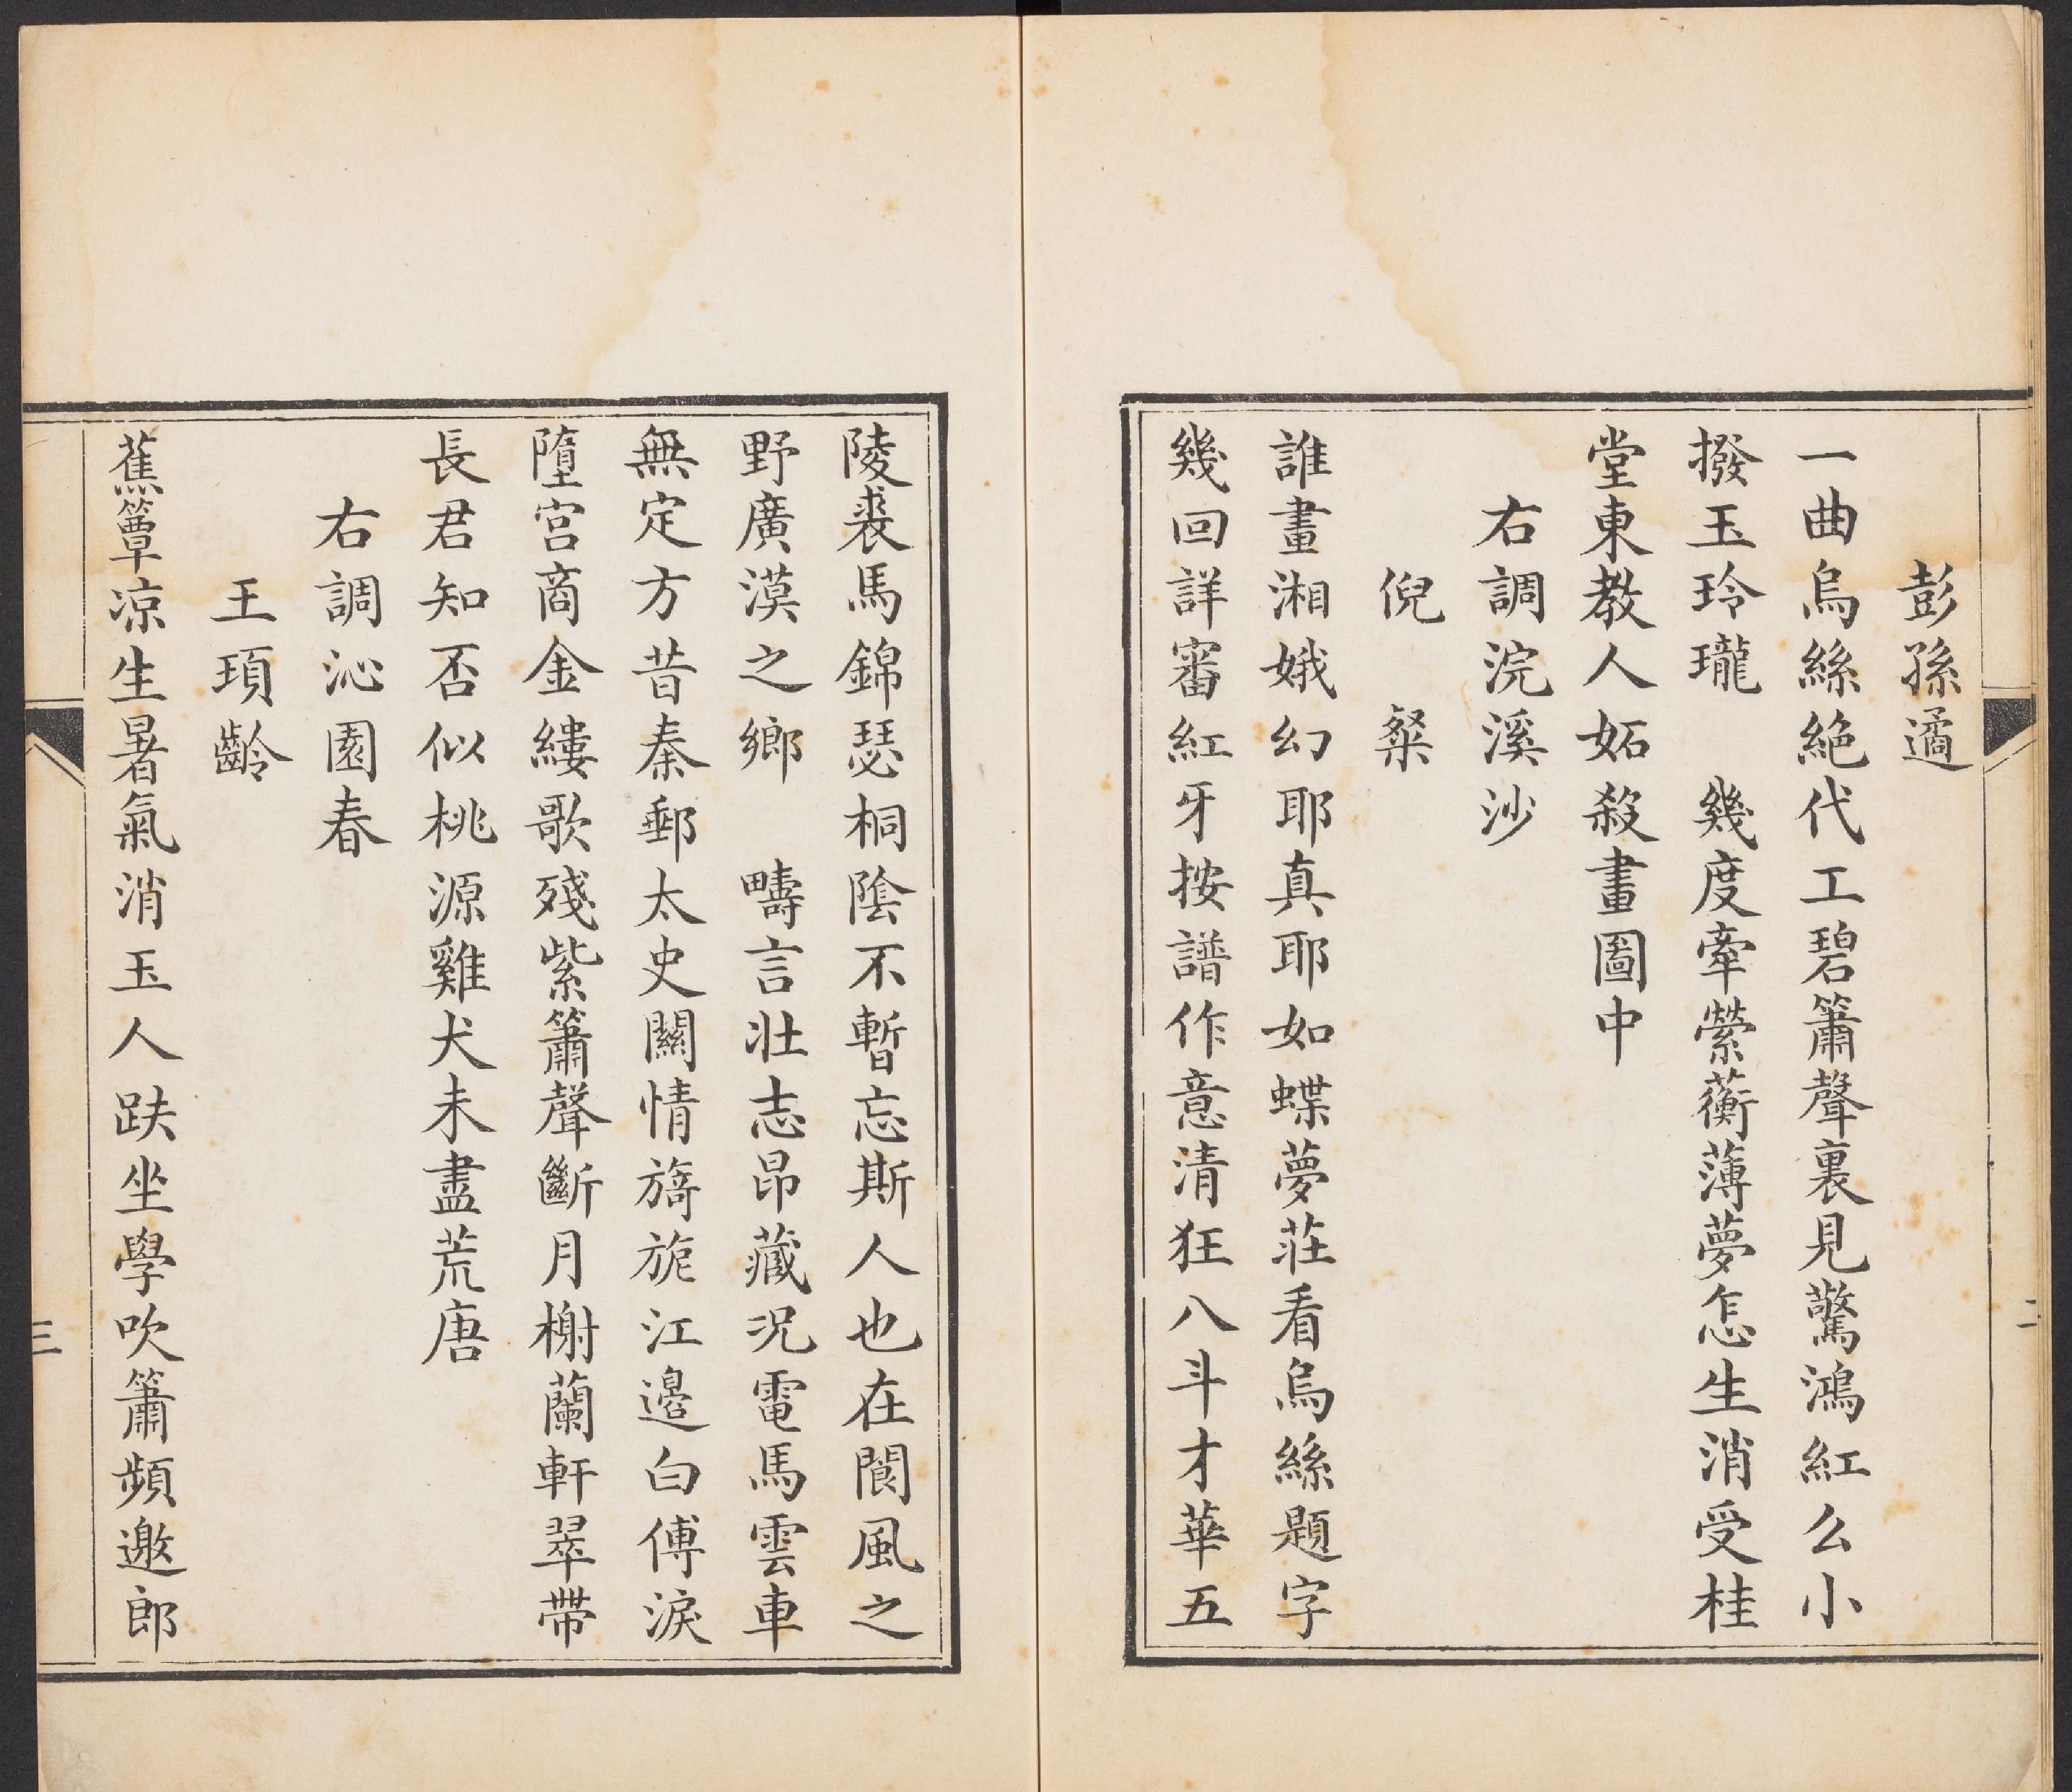 彭孫遹
一曲烏絲絶代工碧簫聲裏見驚鴻紅么小
撥玉玲瓏　幾度牽縈蘅薄夢怎生消受桂
堂東教人妬殺畫圖中
右調浣溪沙
倪粲
誰畫湘娥幻耶真耶如蝶夢莊看烏絲題字
幾回詳審紅牙按譜作意清狂八斗才華五
二
陵裘馬錦瑟桐陰不暫忘斯人也在閬風之
野廣漠之鄉　疇言壯志昂藏况電馬雲車
無定方昔秦郵太史關情旖旎江邊白傅淚
墮宫商金縷歌殘紫簫聲斷月榭蘭軒翠帶
長君知否似桃源雞犬未盡荒唐
右調沁園春
王頊齡
蕉簟凉生暑氣消玉人趺坐學吹簫頻邀郎
三